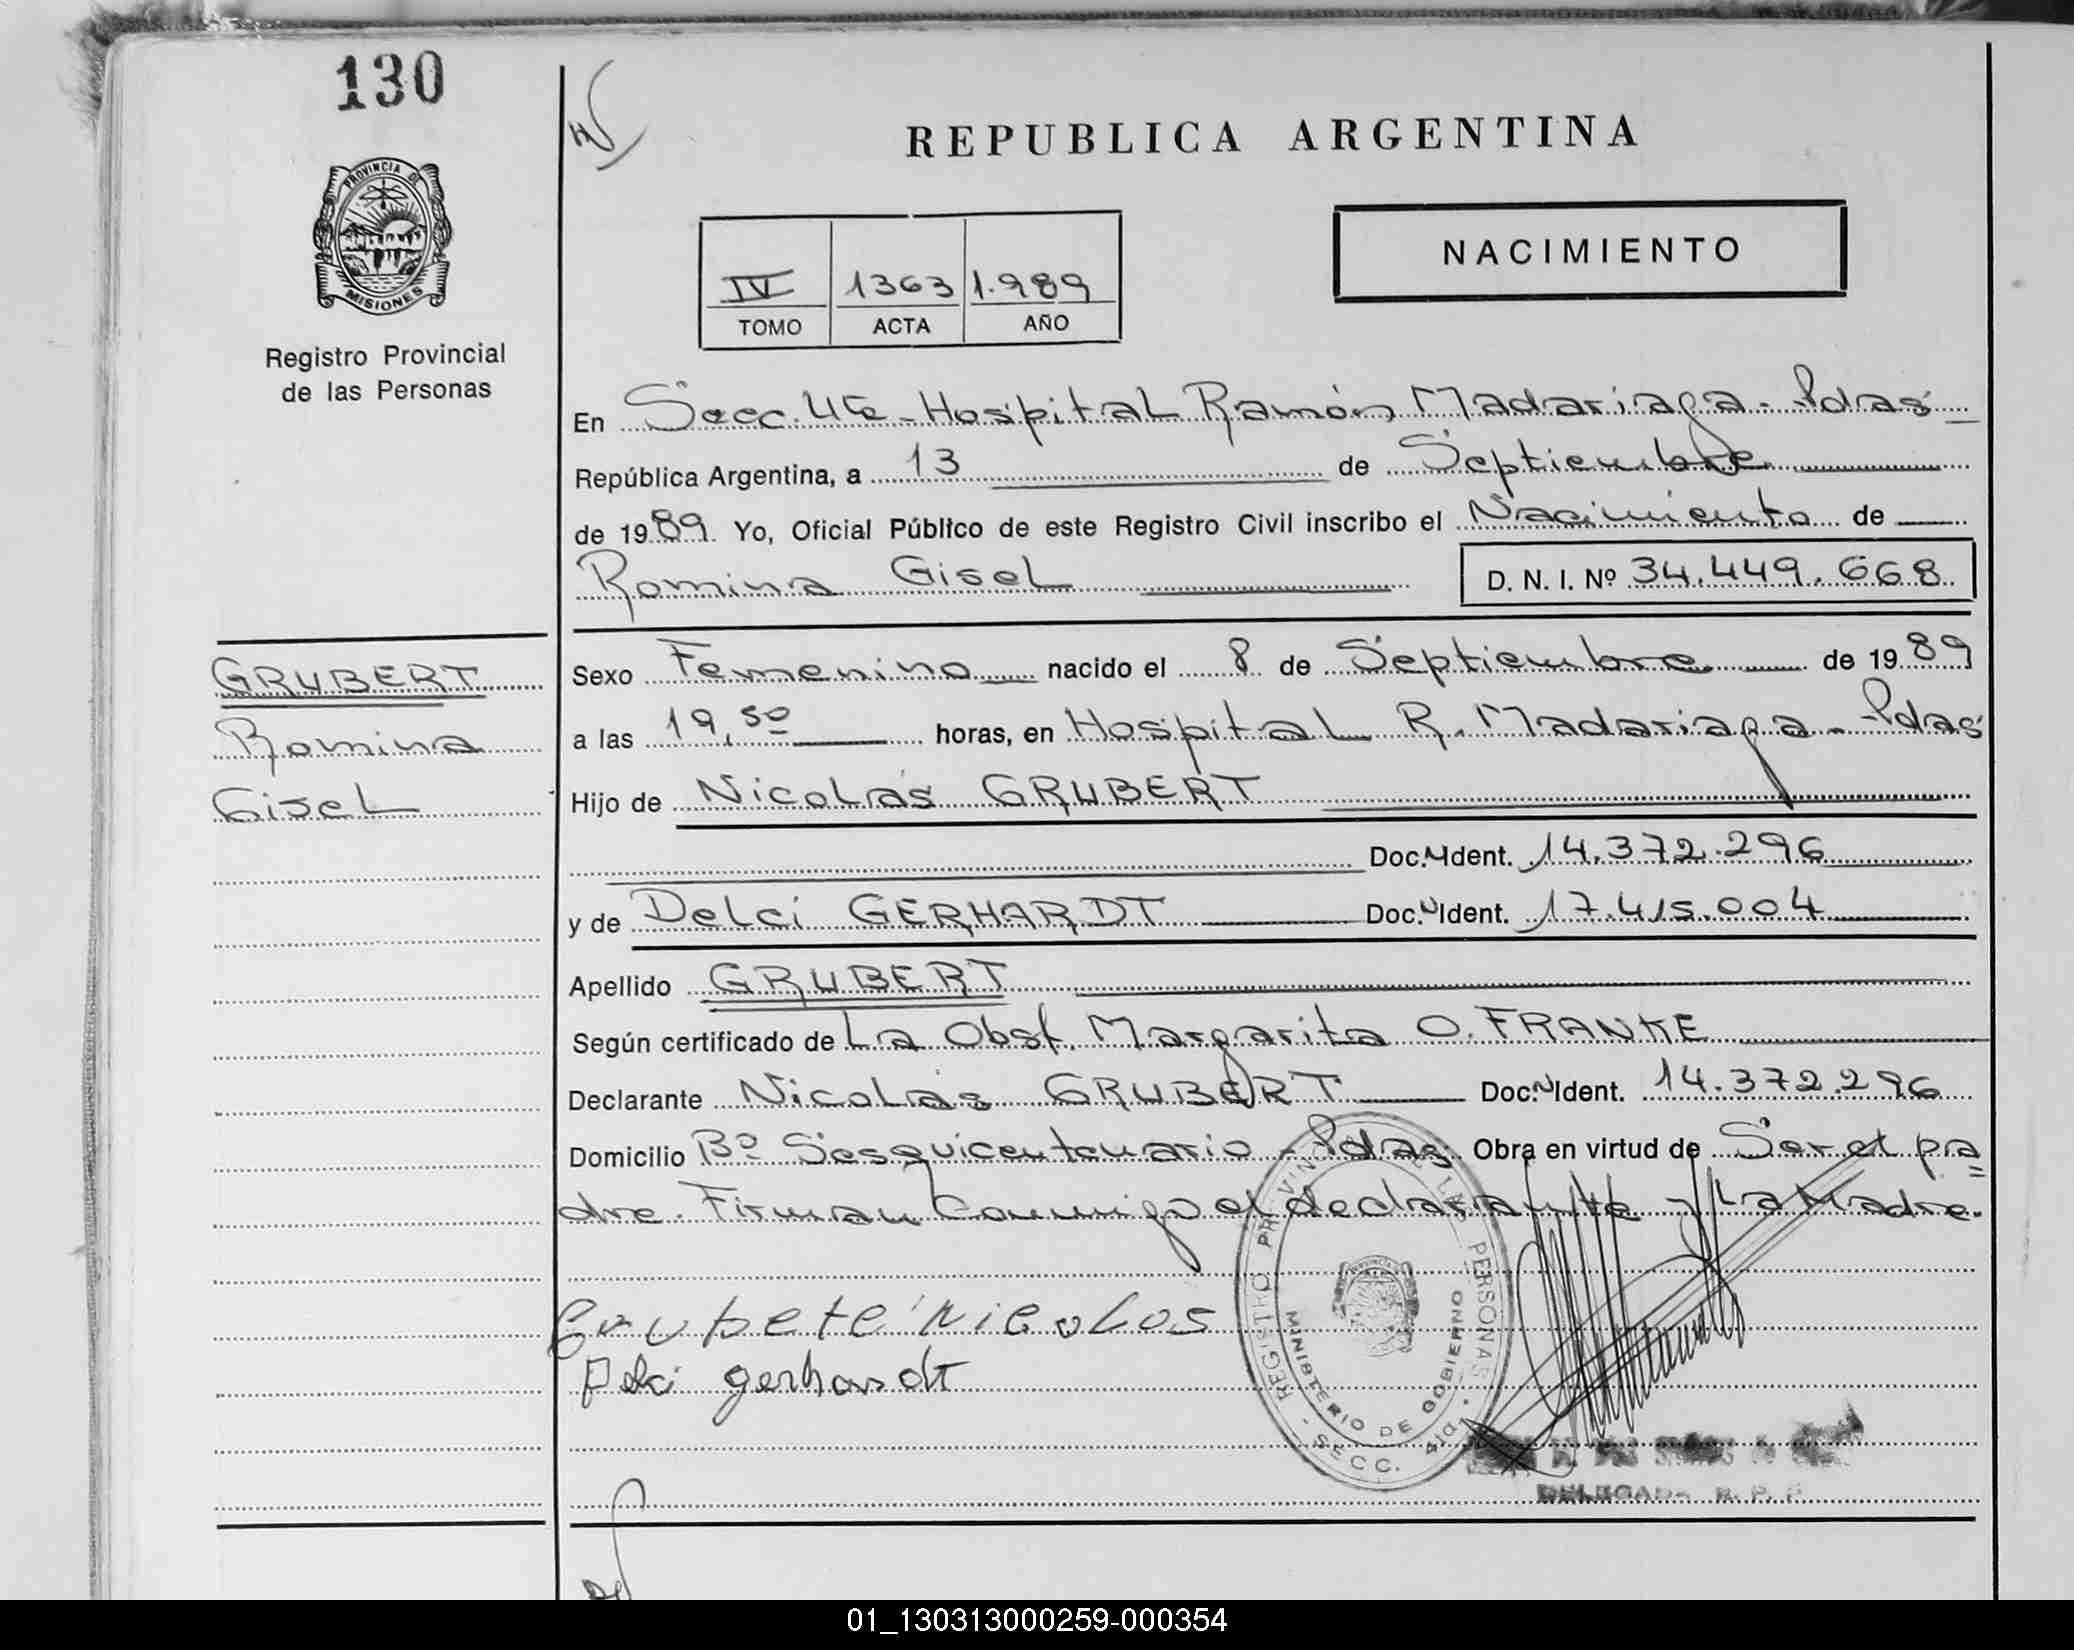 130
REPUBLICA ARGENTINA
PROVINCIA DE
MISIONES
Registro Provincial
de las Personas
NACIMIENTO
IV 1363 1.989
TOMO ACTA AÑO
En Secc. 4ta - Hospital Ramón Madariaga - Pdas
República Argentina, a 13 de Septiembre
de 1989 Yo, Oficial Público de este Registro Civil inscribo el Nacimiento de
Romina Gisel D. N. I. Nº 34.449.668
GRUBERT
Romina
Gisel
Sexo Femenino nacido el 8 de Septiembre de 1989
a las 19,50 horas, en Hospital R. Madariaga - Pdas
Hijo de Nicolás GRUBERT
Doc. N Ident. 14.372.296
y de Delci GERHARDT Doc. N Ident. 17.415.004
Apellido GRUBERT
Según certificado de La Obst. Margarita O. FRANKE
Declarante Nicolás GRUBERT Doc. N Ident. 14.372.296
Domicilio Bº Sesquicentenario - Pdas. Obra en virtud de Ser el pa=
dre. Firman Conmigo el declarante y La Madre.
Delci gerhardt
REGISTRO PROVIN PERSONAS
MINISTERIO DE GOBIERNO
SECC. 4ta
DELEGADA R. P. P.
01_130313000259-000354